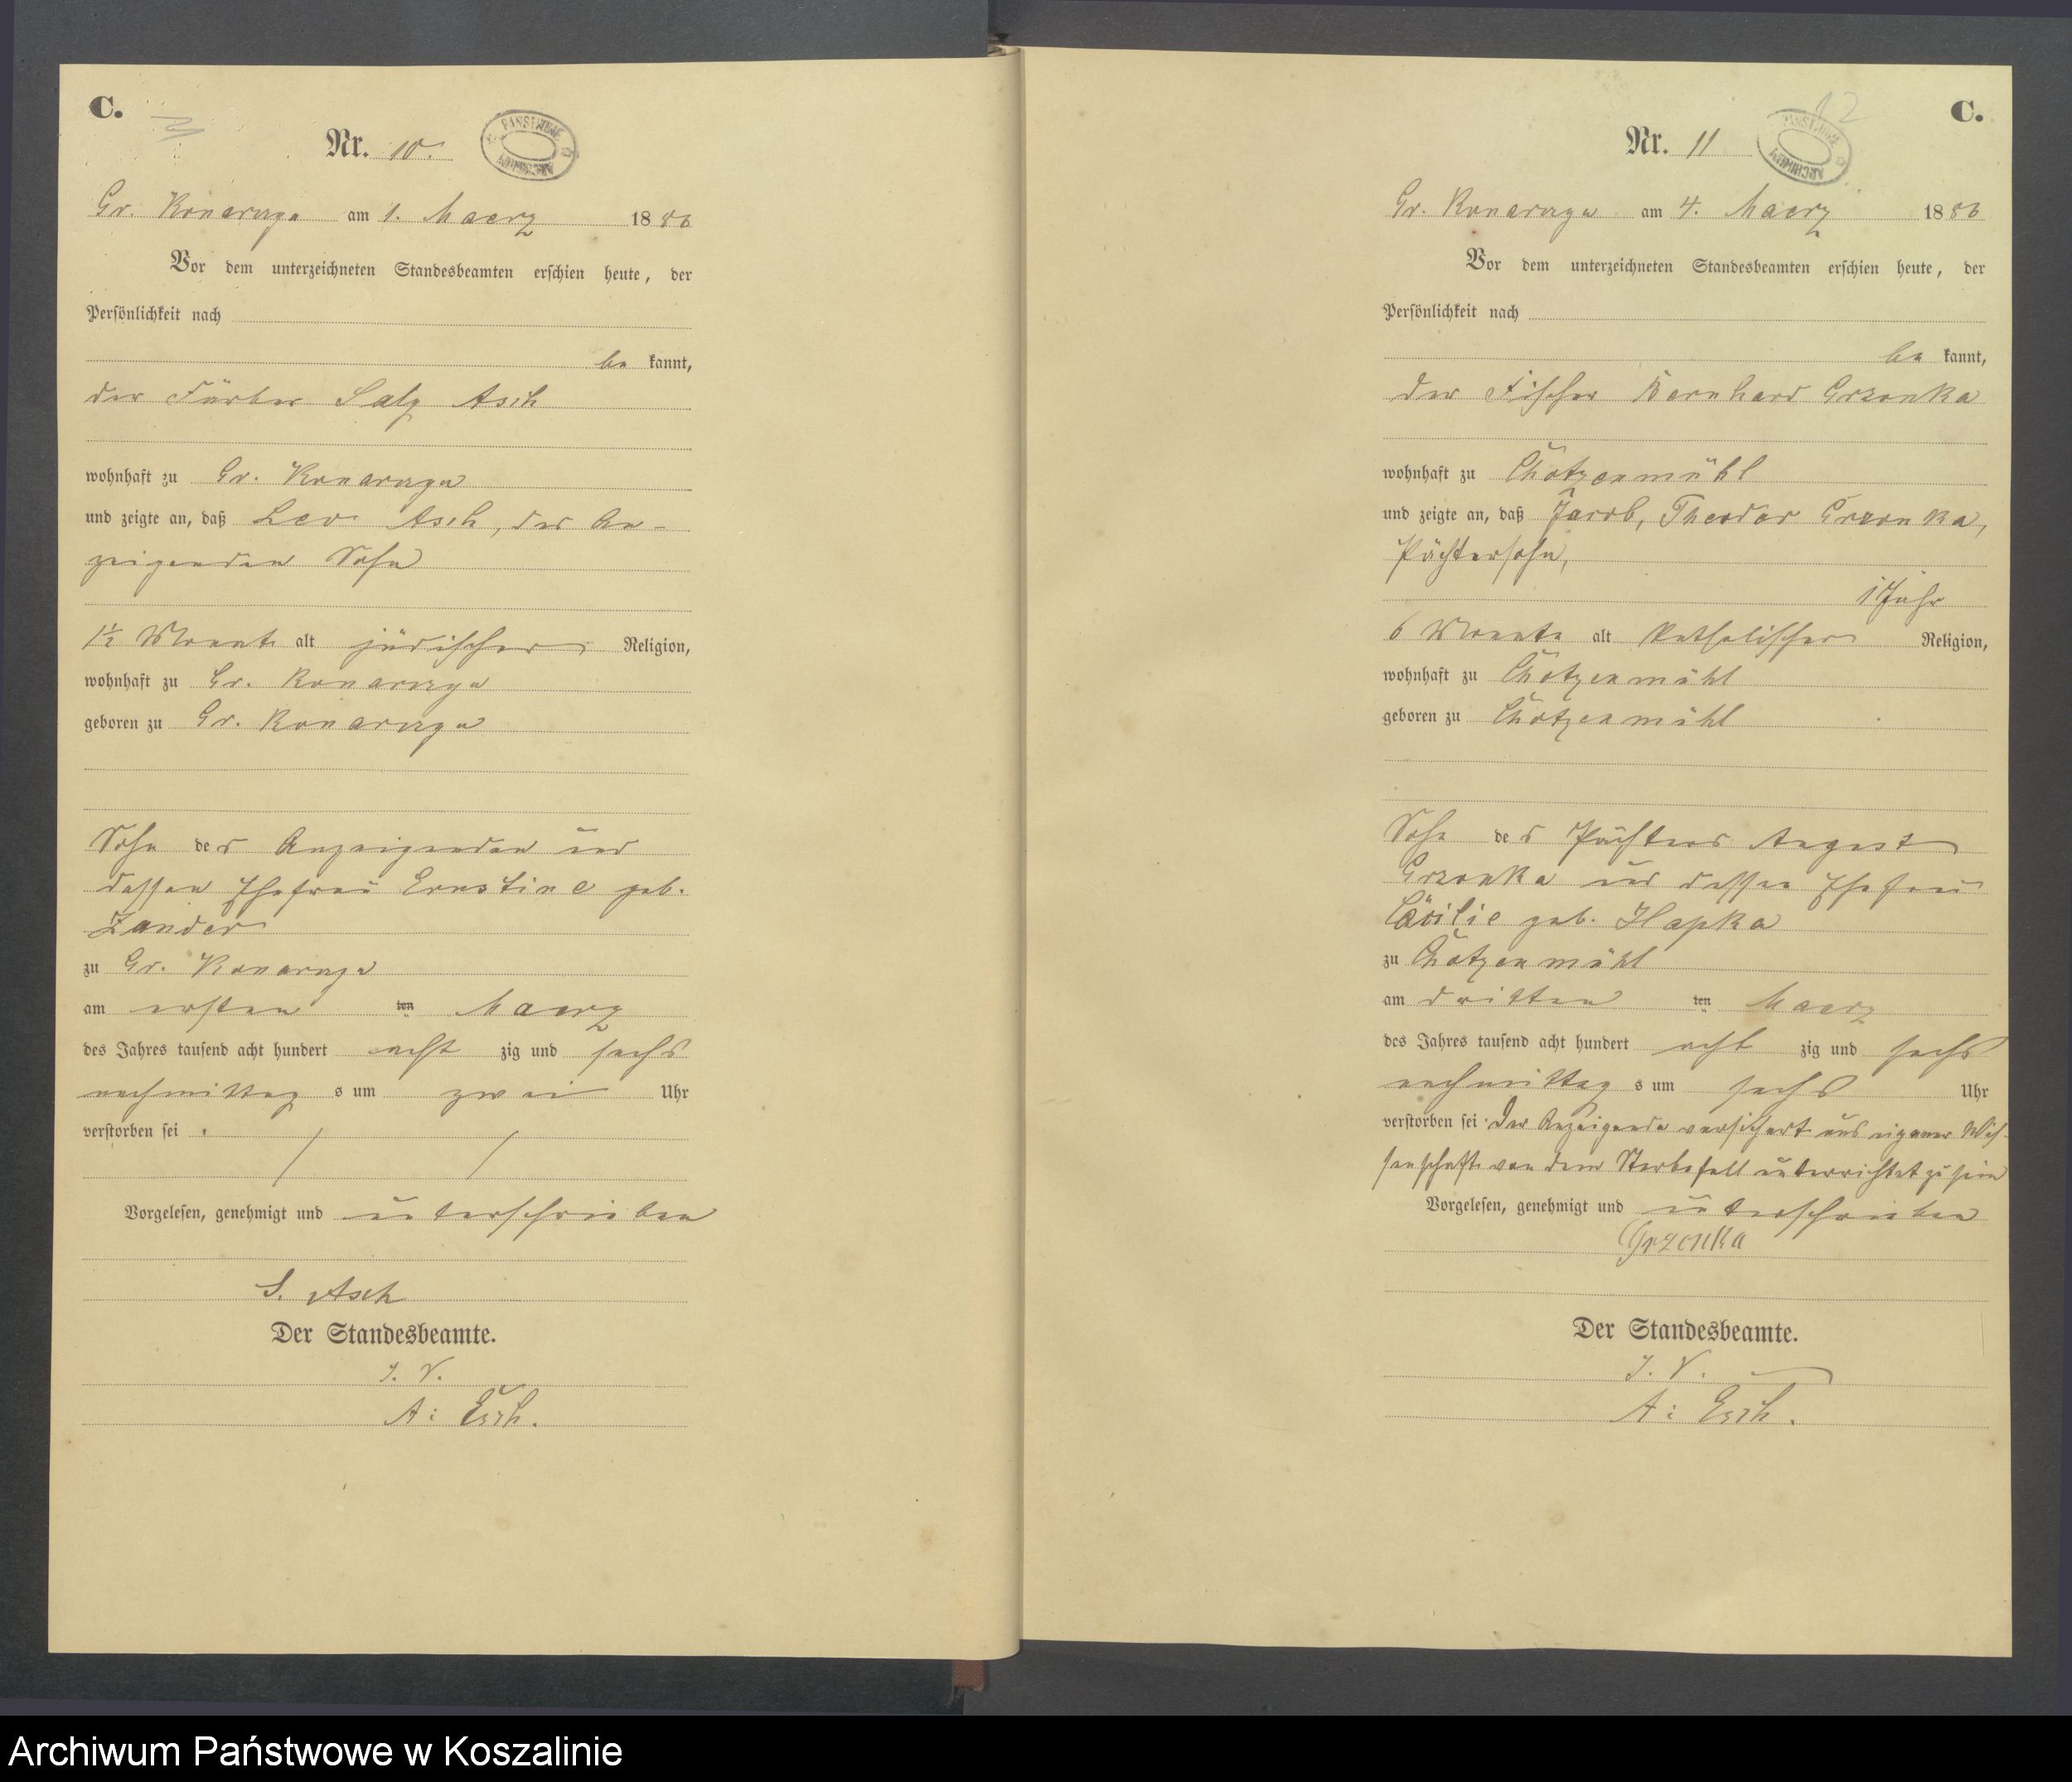 C.
Nr. 10.
PAŃSTWOWE ARCHIWUM
Gr. Konarzyn am 1. Maerz 1886
Vor dem unterzeichneten Standesbeamten erschien heute, der
Persönlichkeit nach
be kannt,
der Färber Salz Asch
wohnhaft zu Gr. Konarzyn
und zeigte an, daß Leo Asch, des An-
zeigenden Sohn
1½ Monat alt jüdischer Religion,
wohnhaft zu Gr. Konarzyn
geboren zu Gr. Konarzyn
Sohn des Anzeigenden und
dessen Ehefrau Ernstine geb.
Zander
zu Gr. Konarzyn
am ersten ten Maerz
des Jahres tausend acht hundert acht zig und sechs
nachmittag s um zwei Uhr
verstorben sei.
Vorgelesen, genehmigt und unterschrieben
S. Asch
Der Standesbeamte.
I. V.
A: Esch.
12
C.
Nr. 11
PAŃSTWOWE ARCHIWUM
Gr. Konarzyn am 4. Maerz 1886
Vor dem unterzeichneten Standesbeamten erschien heute, der
Persönlichkeit nach
be kannt,
der Fischer Bernhard Grzonka
wohnhaft zu Chotzenmühl
und zeigte an, daß Jacob, Theodor Grzonka,
Pächtersohn,
1 Jahr
6 Monate alt katholischer Religion,
wohnhaft zu Chotzenmühl
geboren zu Chotzenmühl
Sohn des Pächters August
Grzonka und dessen Ehefrau
Cäcilie geb. Hapka
zu Chotzenmühl
am dritten ten Maerz
des Jahres tausend acht hundert acht zig und sechs
nachmittag s um sechs Uhr
verstorben sei. Der Anzeigende versichert aus eigener Wis-
senschaft von dem Sterbefall unterrichtet zu sein
Vorgelesen, genehmigt und unterschrieben
Grzonka
Der Standesbeamte.
I. V.
A: Esch.
Archiwum Państwowe w Koszalinie